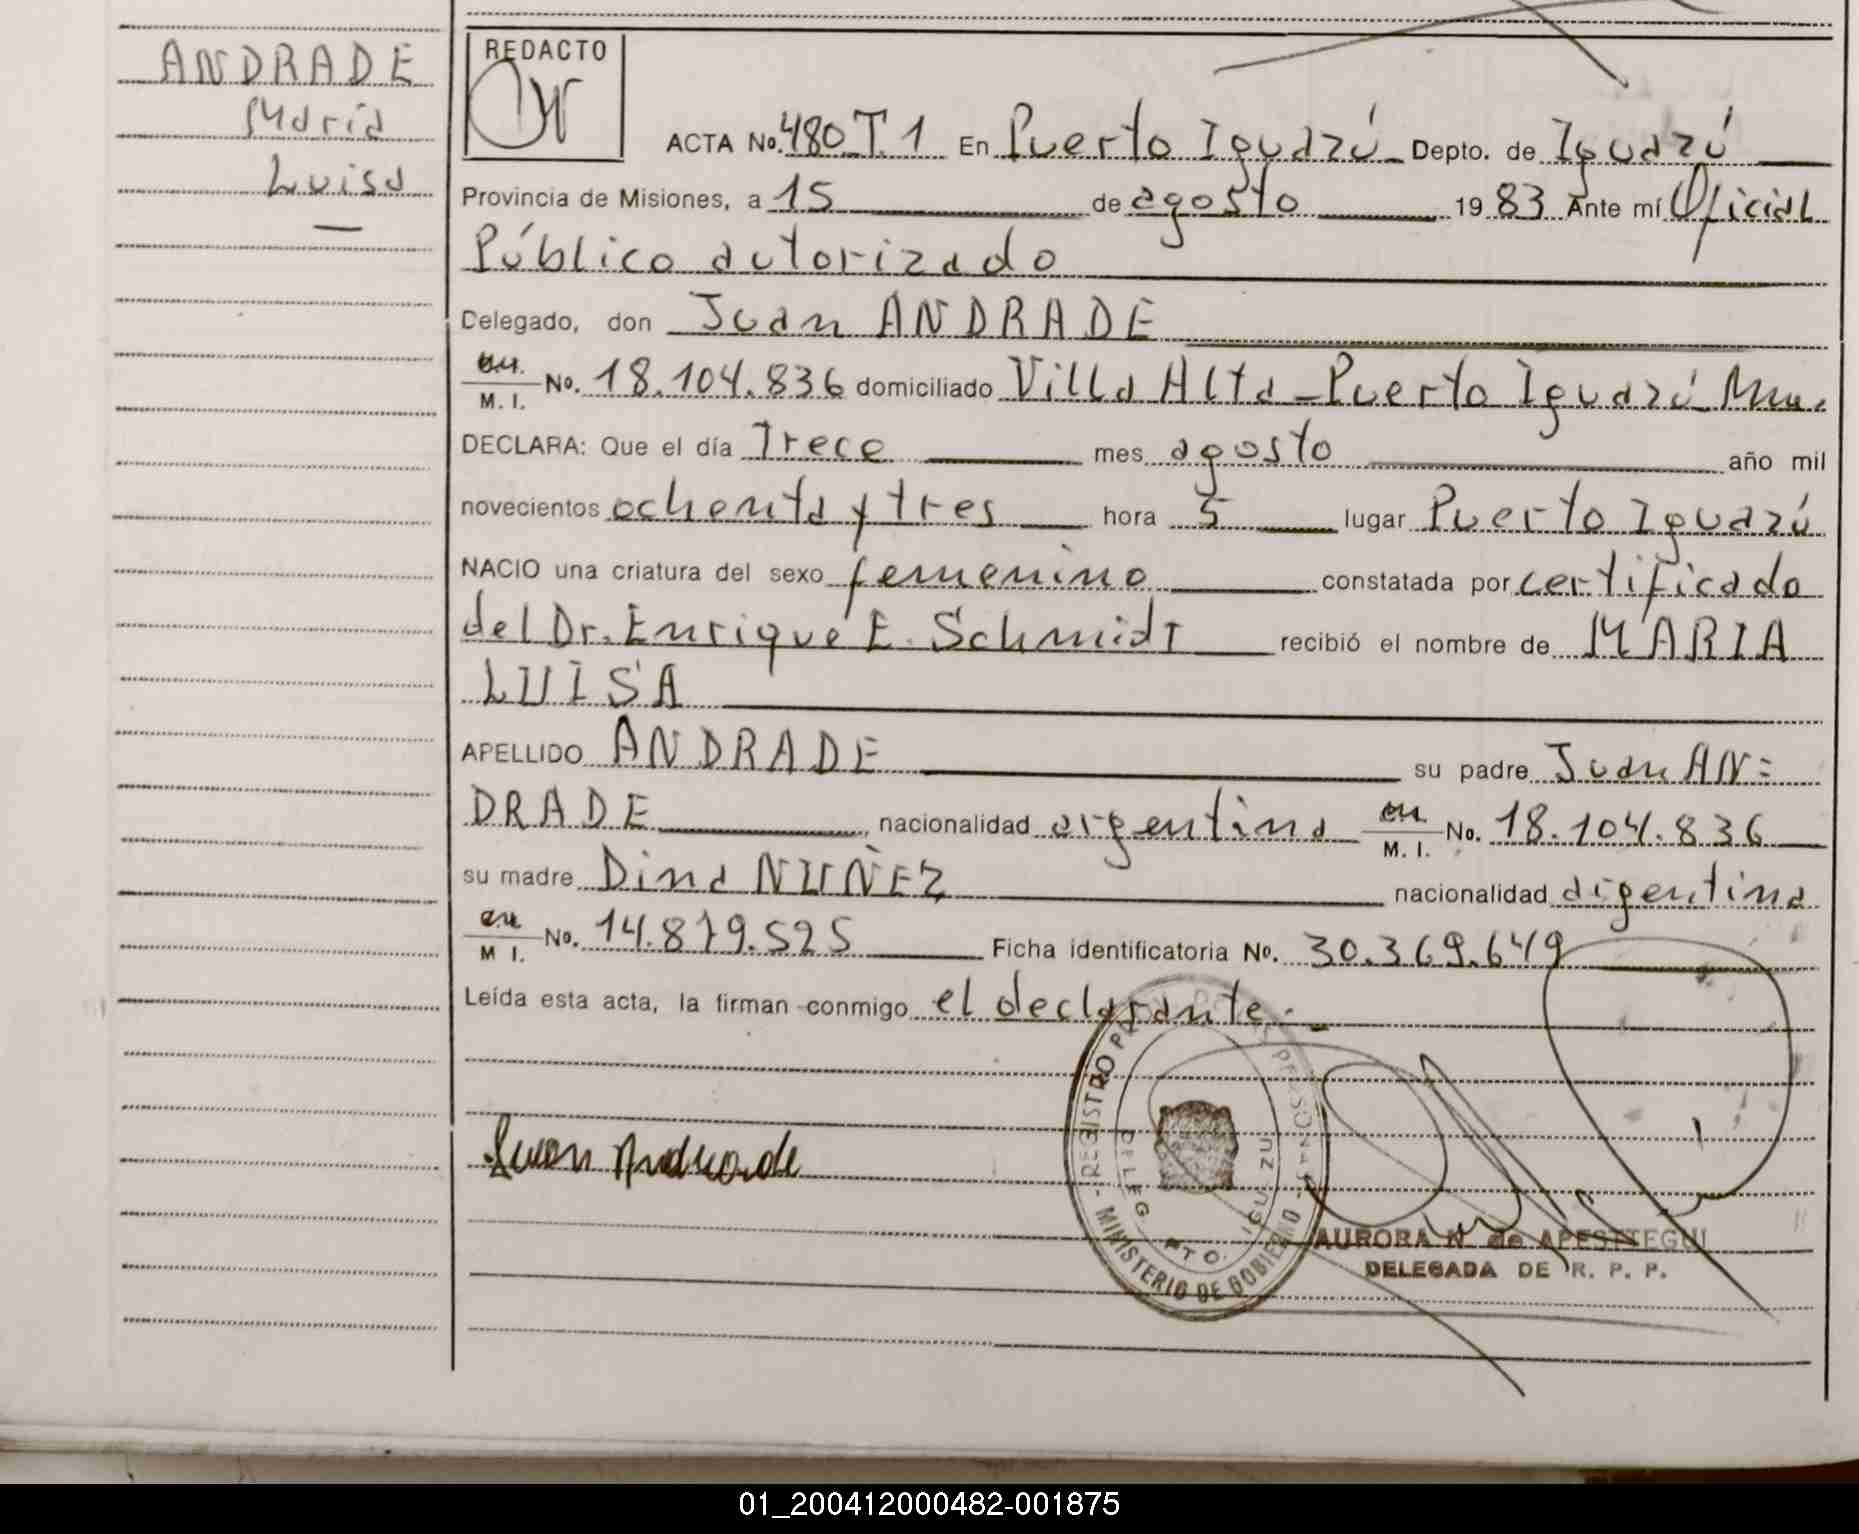 ANDRADE
Maria
Luisa
—
REDACTO
ACTA No. 480 T.1 En Puerto Iguazú Depto. de Iguazú
Provincia de Misiones, a 15 de agosto 19 83 Ante mí Oficial
Público autorizado
Delegado, don Juan ANDRADE
M. I. No. 18.104.836 domiciliado Villa Alta - Puerto Iguazú
DECLARA: Que el día Trece mes agosto año mil
novecientos ochenta y tres hora 5 lugar Puerto Iguazú
NACIO una criatura del sexo femenino constatada por certificado
del Dr. Enrique E. Schmidt recibió el nombre de MARIA
LUISA
APELLIDO ANDRADE su padre Juan AN=
DRADE, nacionalidad argentina M. I. No. 18.104.836
su madre Dina NUÑEZ nacionalidad argentina
M I. No. 14.879.525 Ficha identificatoria No. 30.369.649
Leída esta acta, la firman conmigo el declarante.-
Juan Andrade
REGISTRO
MINISTERIO DE GOBIERNO
DELEG. PTO. IGUAZU
AURORA N. de APESTEGUI
DELEGADA DE R. P. P.
01_200412000482-001875